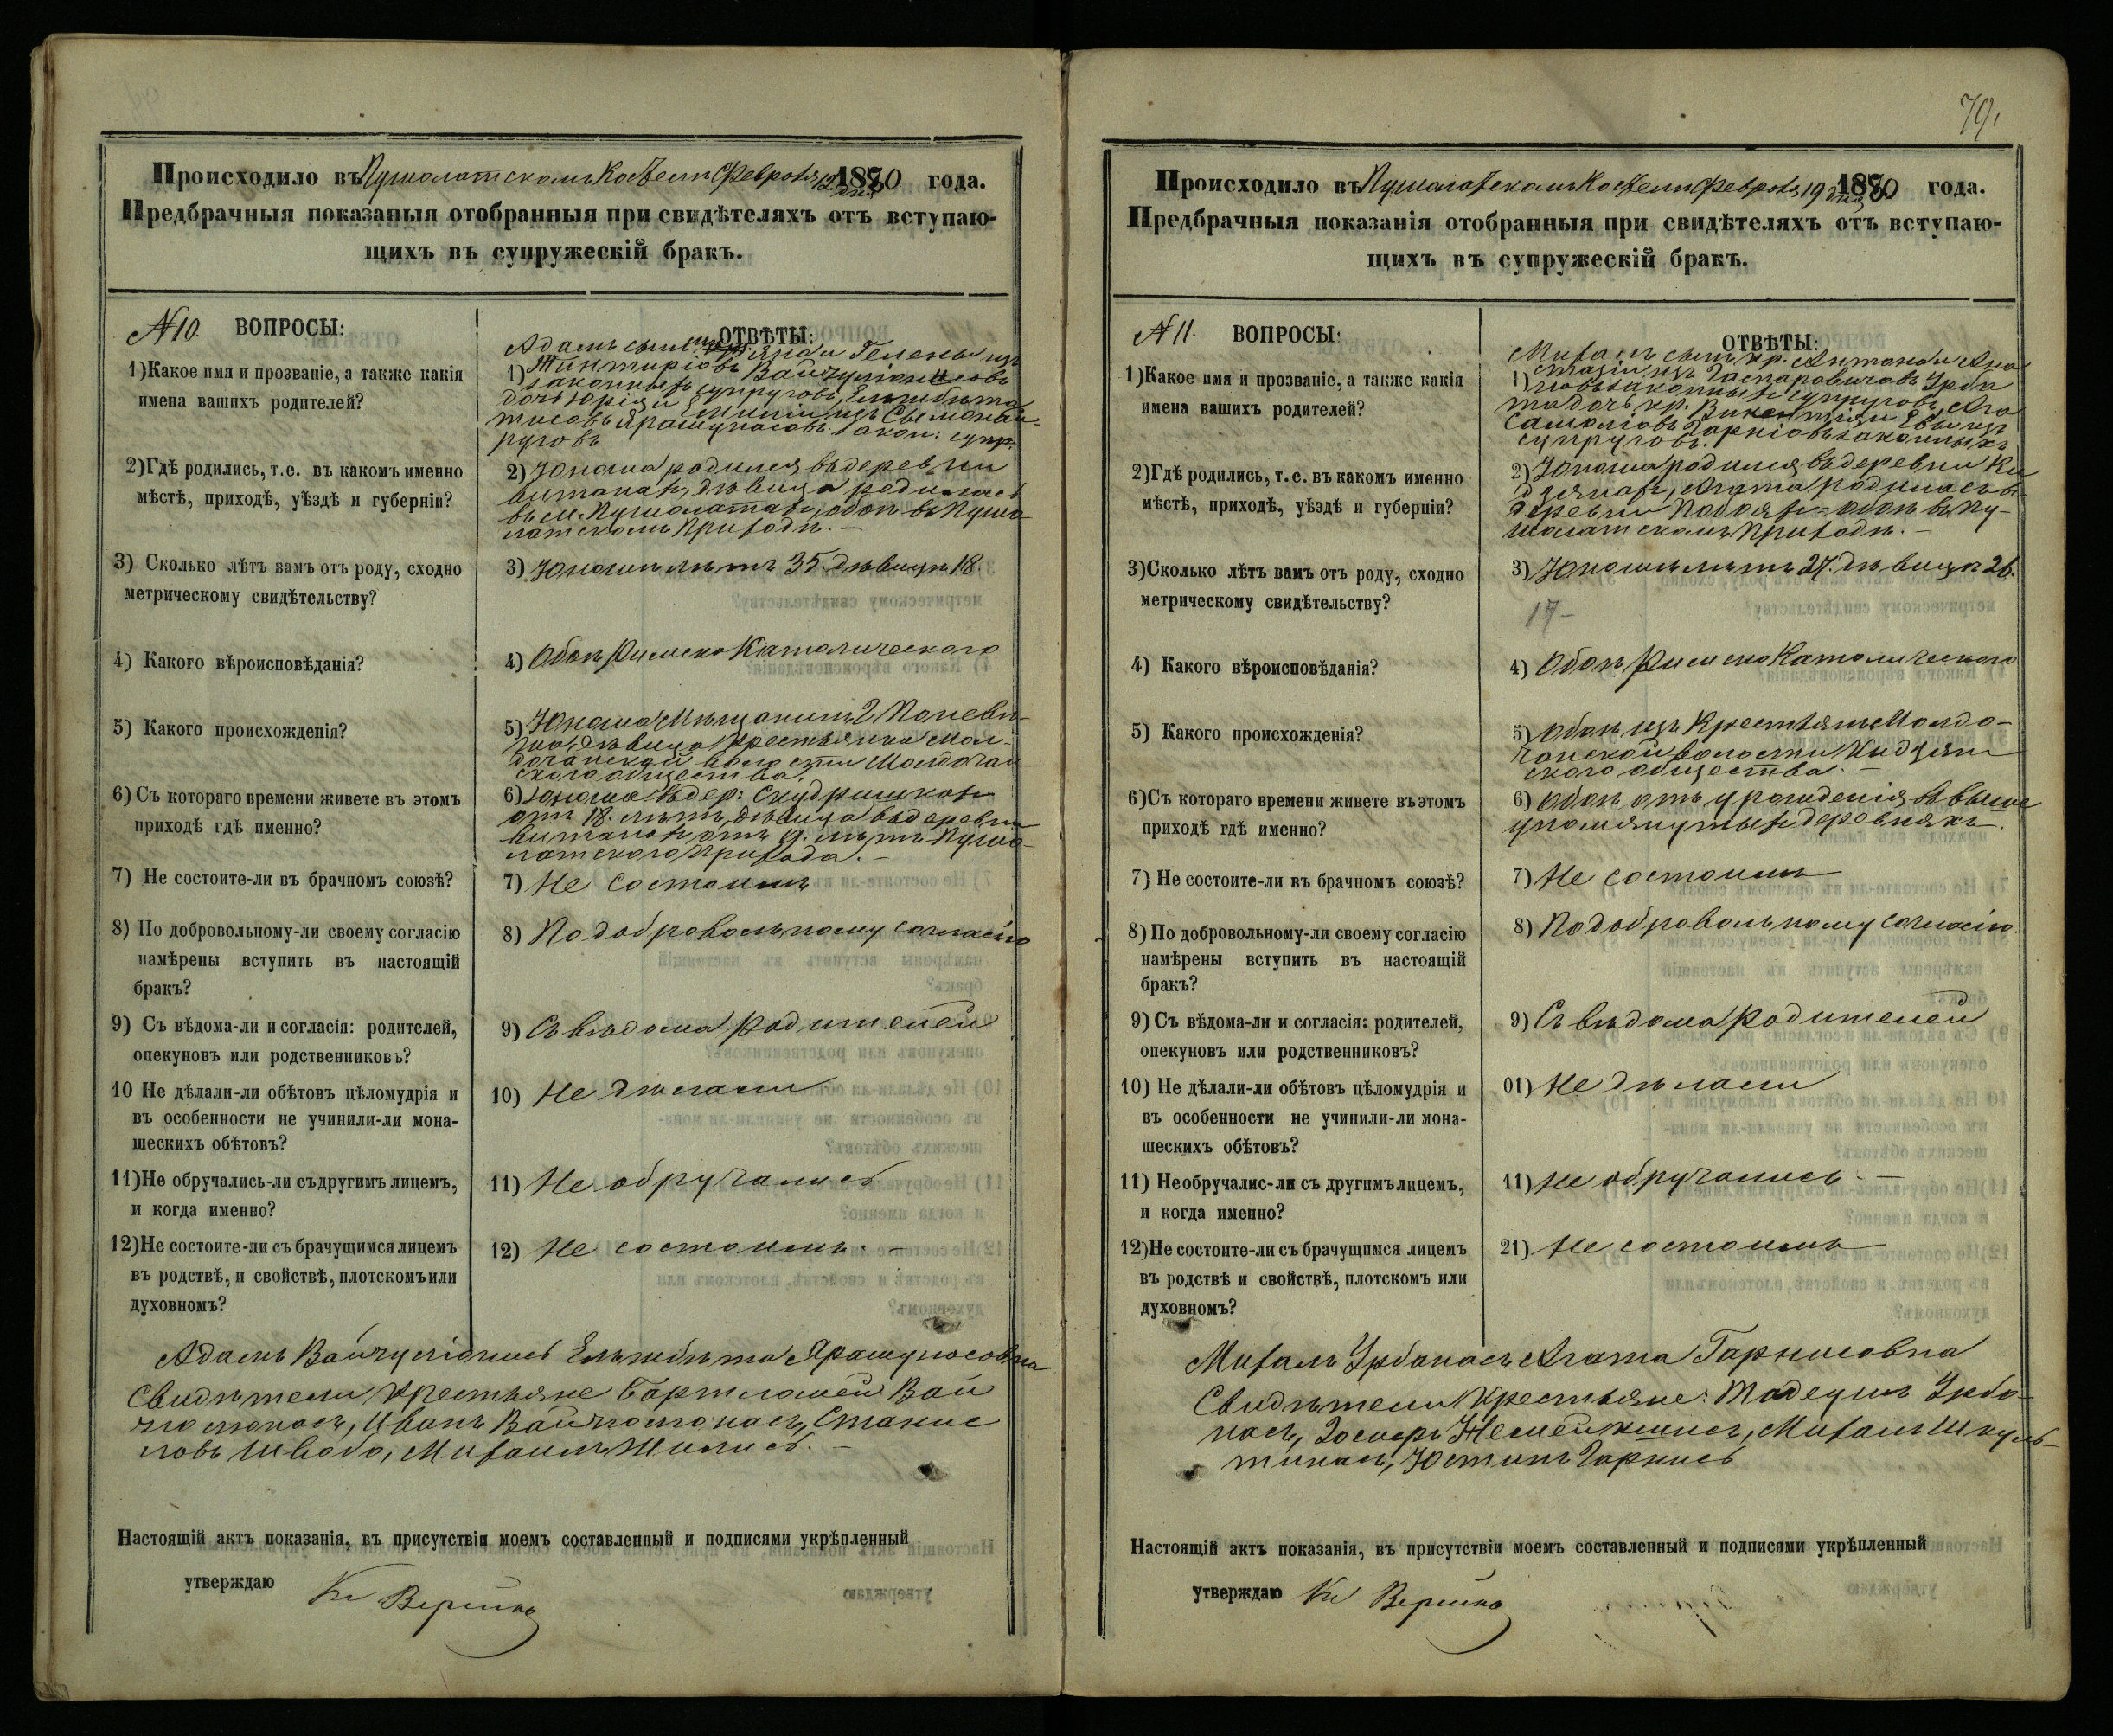 Происходило въ Пушолатскомъ Костели Февраля 12 дня 1880 года.
Предбрачныя показаныя отобранныя при свидѣтеляхъ отъ вступаю-
щихъ въ супружескій бракъ.
№10. ВОПРОСЫ:
1)Какое имя и прозваніе, а также какія
имена вашихъ родителей?
2)Гдѣ родились, т.е. въ какомъ именно
мѣстѣ, приходѣ, уѣздѣ и губерніи?
3) Сколько лѣтъ вамъ отъ роду, сходно
метрическому свидѣтельству?
4) Какого вѣроисповѣданія?
5) Какого происхожденія?
6) Съ котораго времени живете въ этомъ
приходѣ гдѣ именно?
7) Не состоите-ли въ брачномъ союзѣ?
8) По добровольному-ли своему согласію
намѣрены вступить въ настоящій
бракъ?
9) Съ вѣдома-ли и согласія: родителей,
опекуновъ или родственниковъ?
10 Не дѣлали-ли обѣтовъ цѣломудрія и
въ особенности не учинили-ли мона-
шескихъ обѣтовъ?
11)Не обручались-ли съ другимъ лицемъ,
и когда именно?
12)Не состоите-ли съ брачущимся лицемъ
въ родствѣ, и свойствѣ, плотскомъ или
духовномъ?
ОТВѢТЫ:
Адамъ сынъ Яна и Гелены изъ
1)
законныхъ супруговъ, Ельжбѣта
дочь Юрія и
Ярашунасовъ закон: супр:
руговъ
2) Юноша родился въ деревни
Виташахъ, дѣвица родилась
въ м. Пушолатахъ, обоѣ въ Пушо-
латскомъ Приходѣ. —
3) Юноши лѣтъ 35. дѣвицѣ 18.
4) Обоѣ Римско Католическаго
5) Юноша Мѣщанинъ г. Поневѣ-
жа, дѣвица Крестьянка Мол-
дочанской волости Молдочан-
скаго общества.
6) Юноша въ дер:
отъ 18. лѣтъ, дѣвица въ деревни
Виташахъ отъ 9. лѣтъ Пушо-
латскаго Прихода. —
7) Не состоимъ
8) По добровольному согласію
9) Съ вѣдома Родителей
10) Не дѣлали
11) Не обручались
12) Не состоимъ. —
Адамъ Вайчуліонисъ Ельжбѣта Ярашунасовна
Свидѣтели Крестьяне Бартломей Вай
Иванъ Станис
ловъ Шведо, Михаилъ Жилисъ. —
Настоящій актъ показанія, въ присутствіи моемъ составленный и подписями укрѣпленный
утверждаю
79.
Происходило въ Пушолатскомъ Костели Февраля 19 дня 1880 года.
Предбрачныя показанія отобранныя при свидѣтеляхъ отъ вступаю-
щихъ въ супружескій бракъ.
№11. ВОПРОСЫ:
1)Какое имя и прозваніе, а также какія
имена вашихъ родителей?
2)Гдѣ родились, т.е. въ какомъ именно
мѣстѣ, приходѣ, уѣздѣ и губерніи?
3)Сколько лѣтъ вамъ отъ роду, сходно
метрическому свидѣтельству?
4) Какого вѣроисповѣданія?
5) Какого происхожденія?
6)Съ котораго времени живете въ этомъ
приходѣ гдѣ именно?
7) Не состоите-ли въ брачномъ союзѣ?
8) По добровольному-ли своему согласію
намѣрены вступить въ настоящій
бракъ?
9) Съ вѣдома-ли и согласія: родителей,
опекуновъ или родственниковъ?
10) Не дѣлали-ли обѣтовъ цѣломудрія и
въ особенности не учинили-ли мона-
шескихъ обѣтовъ?
11) Необручалис-ли съ другимъ лицемъ,
и когда именно?
12)Не состоите-ли съ брачущимся лицемъ
въ родствѣ и свойствѣ, плотскомъ или
духовномъ?
ОТВѢТЫ:
Михалъ сынъ кр. Антона и Ана
стазіи изъ Гаспаровичовъ Урба
1) новъ законныхъ супруговъ, Ага
та дочь кр. Викентія и Евы изъ
Гарнісовъ законныхъ
супруговъ.
2) Юноша родился въ деревни Ки
дзянахъ, Агата родилась въ
деревни обоѣ въ Пу-
шолатскомъ Приходѣ. —
3) Юноши лѣтъ 27. дѣвица 26.
17-
4) Обоѣ Римско Католическаго
5) Обоѣ изъ Крестьянъ Молдо-
чанской волости Кидзян
скаго общества. —
6) Обоѣ отъ урожденія въ выше
упомянутыхъ деревняхъ.
7) Не состоимъ
8) По добровольному согласію.
9) Съ вѣдома Родителей
01) Не дѣлали
11) Не обручались. —
21) Не состоимъ
Михалъ Урбанасъ Агата Гарнисовна
Свидѣтели Крестьяне: Тадеушъ Урба-
насъ, Михалъ Шкуль-
тинасъ, Юстинъ Гарнисъ
Настоящій актъ показанія, въ присутствіи моемъ составленный и подписями укрѣпленный
утверждаю